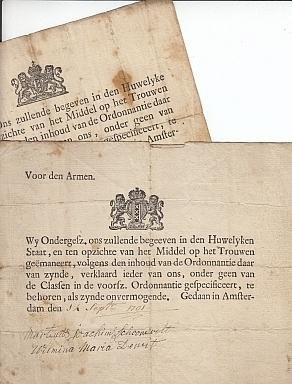 Ons zullende begeven in den Huwelyke
opzichte van het Middel op het Trouwen
den inhoud van de Ordonnantie daar
van ons, onder geen van
gespecificeert, te
Amster-
Voor den Armen.
Wy Ondergesz, ons zullende begeeven in den Huwelyken
Staat, en ten opzichte van het Middel op het Trouwen
geëmaneert, volgens den inhoud van de Ordonnantie daar
van zynde, verklaard ieder van ons, onder geen van
de Classen in de voorsz. Ordonnantie gespecificeert, te
behoren, als zynde onvermogende, Gedaan in Amster-
dam den Sept
Joachim
Wilmina Maria